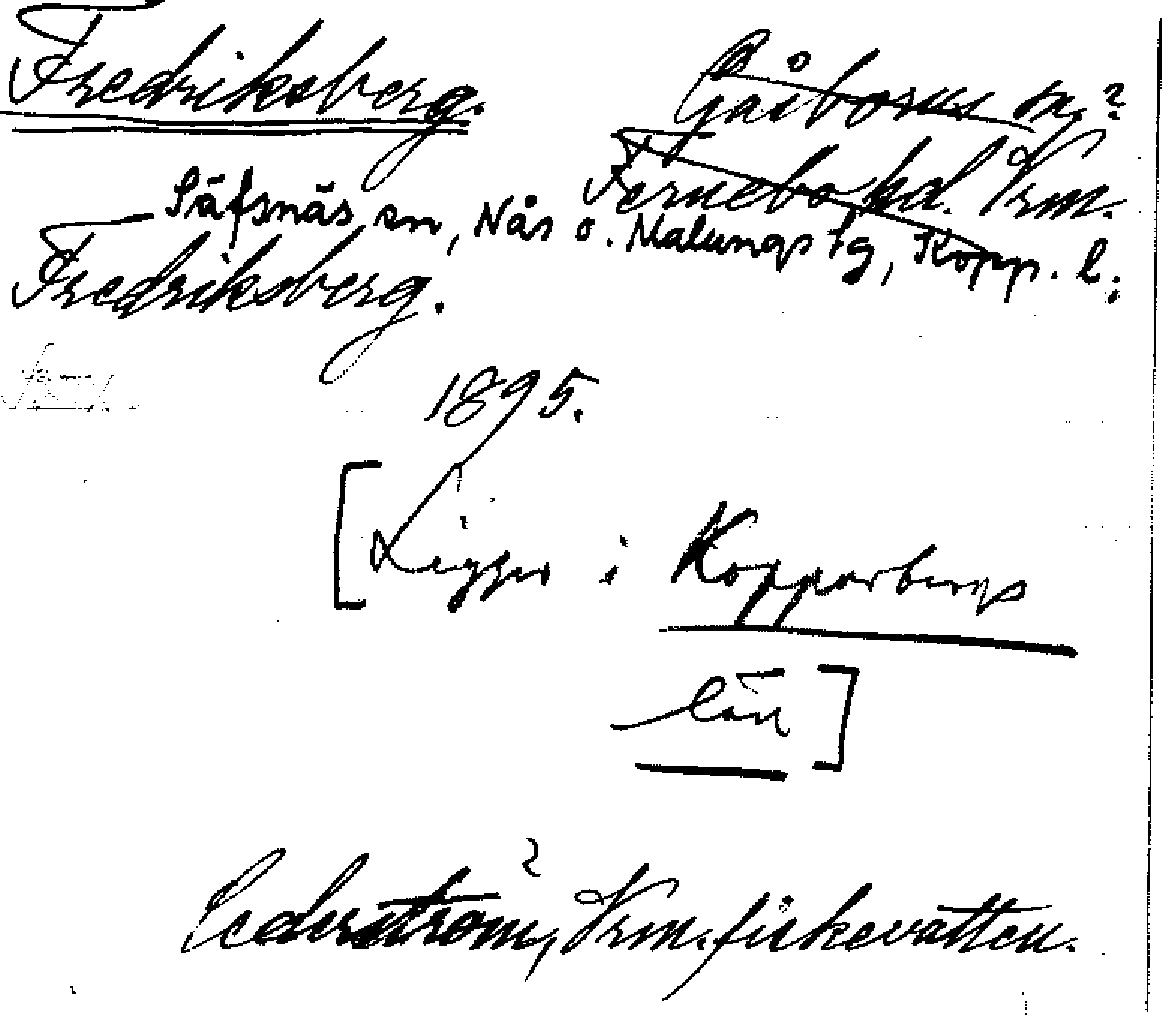 Fredriksberg. Gåsborns sn?
Fernebo hd. Vrm.
Säfsnäs sn, Nås o. Malungs fg, Kopp. l.;
Fredriksberg.
1895.
[Ligger i Kopparbergs
län]
Cederström, Vrm. fiskevatten.